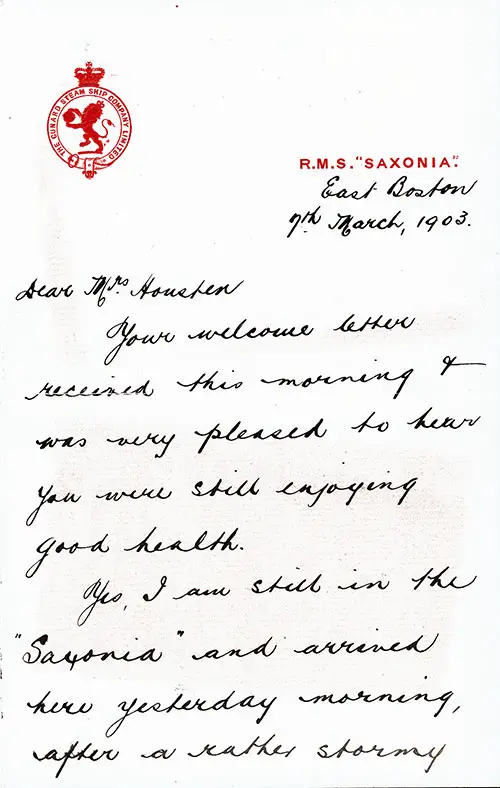 THE CUNARD STEAM SHIP COMPANY LIMITED
R.M.S. "SAXONIA".
East Boston
7th March, 1903.
Dear Mrs Housten
Your welcome letter
received this morning &
was very pleased to hear
you were still enjoying
good health.
Yes, I am still in the
"Saxonia" and arrived
here yesterday morning,
after a rather stormy